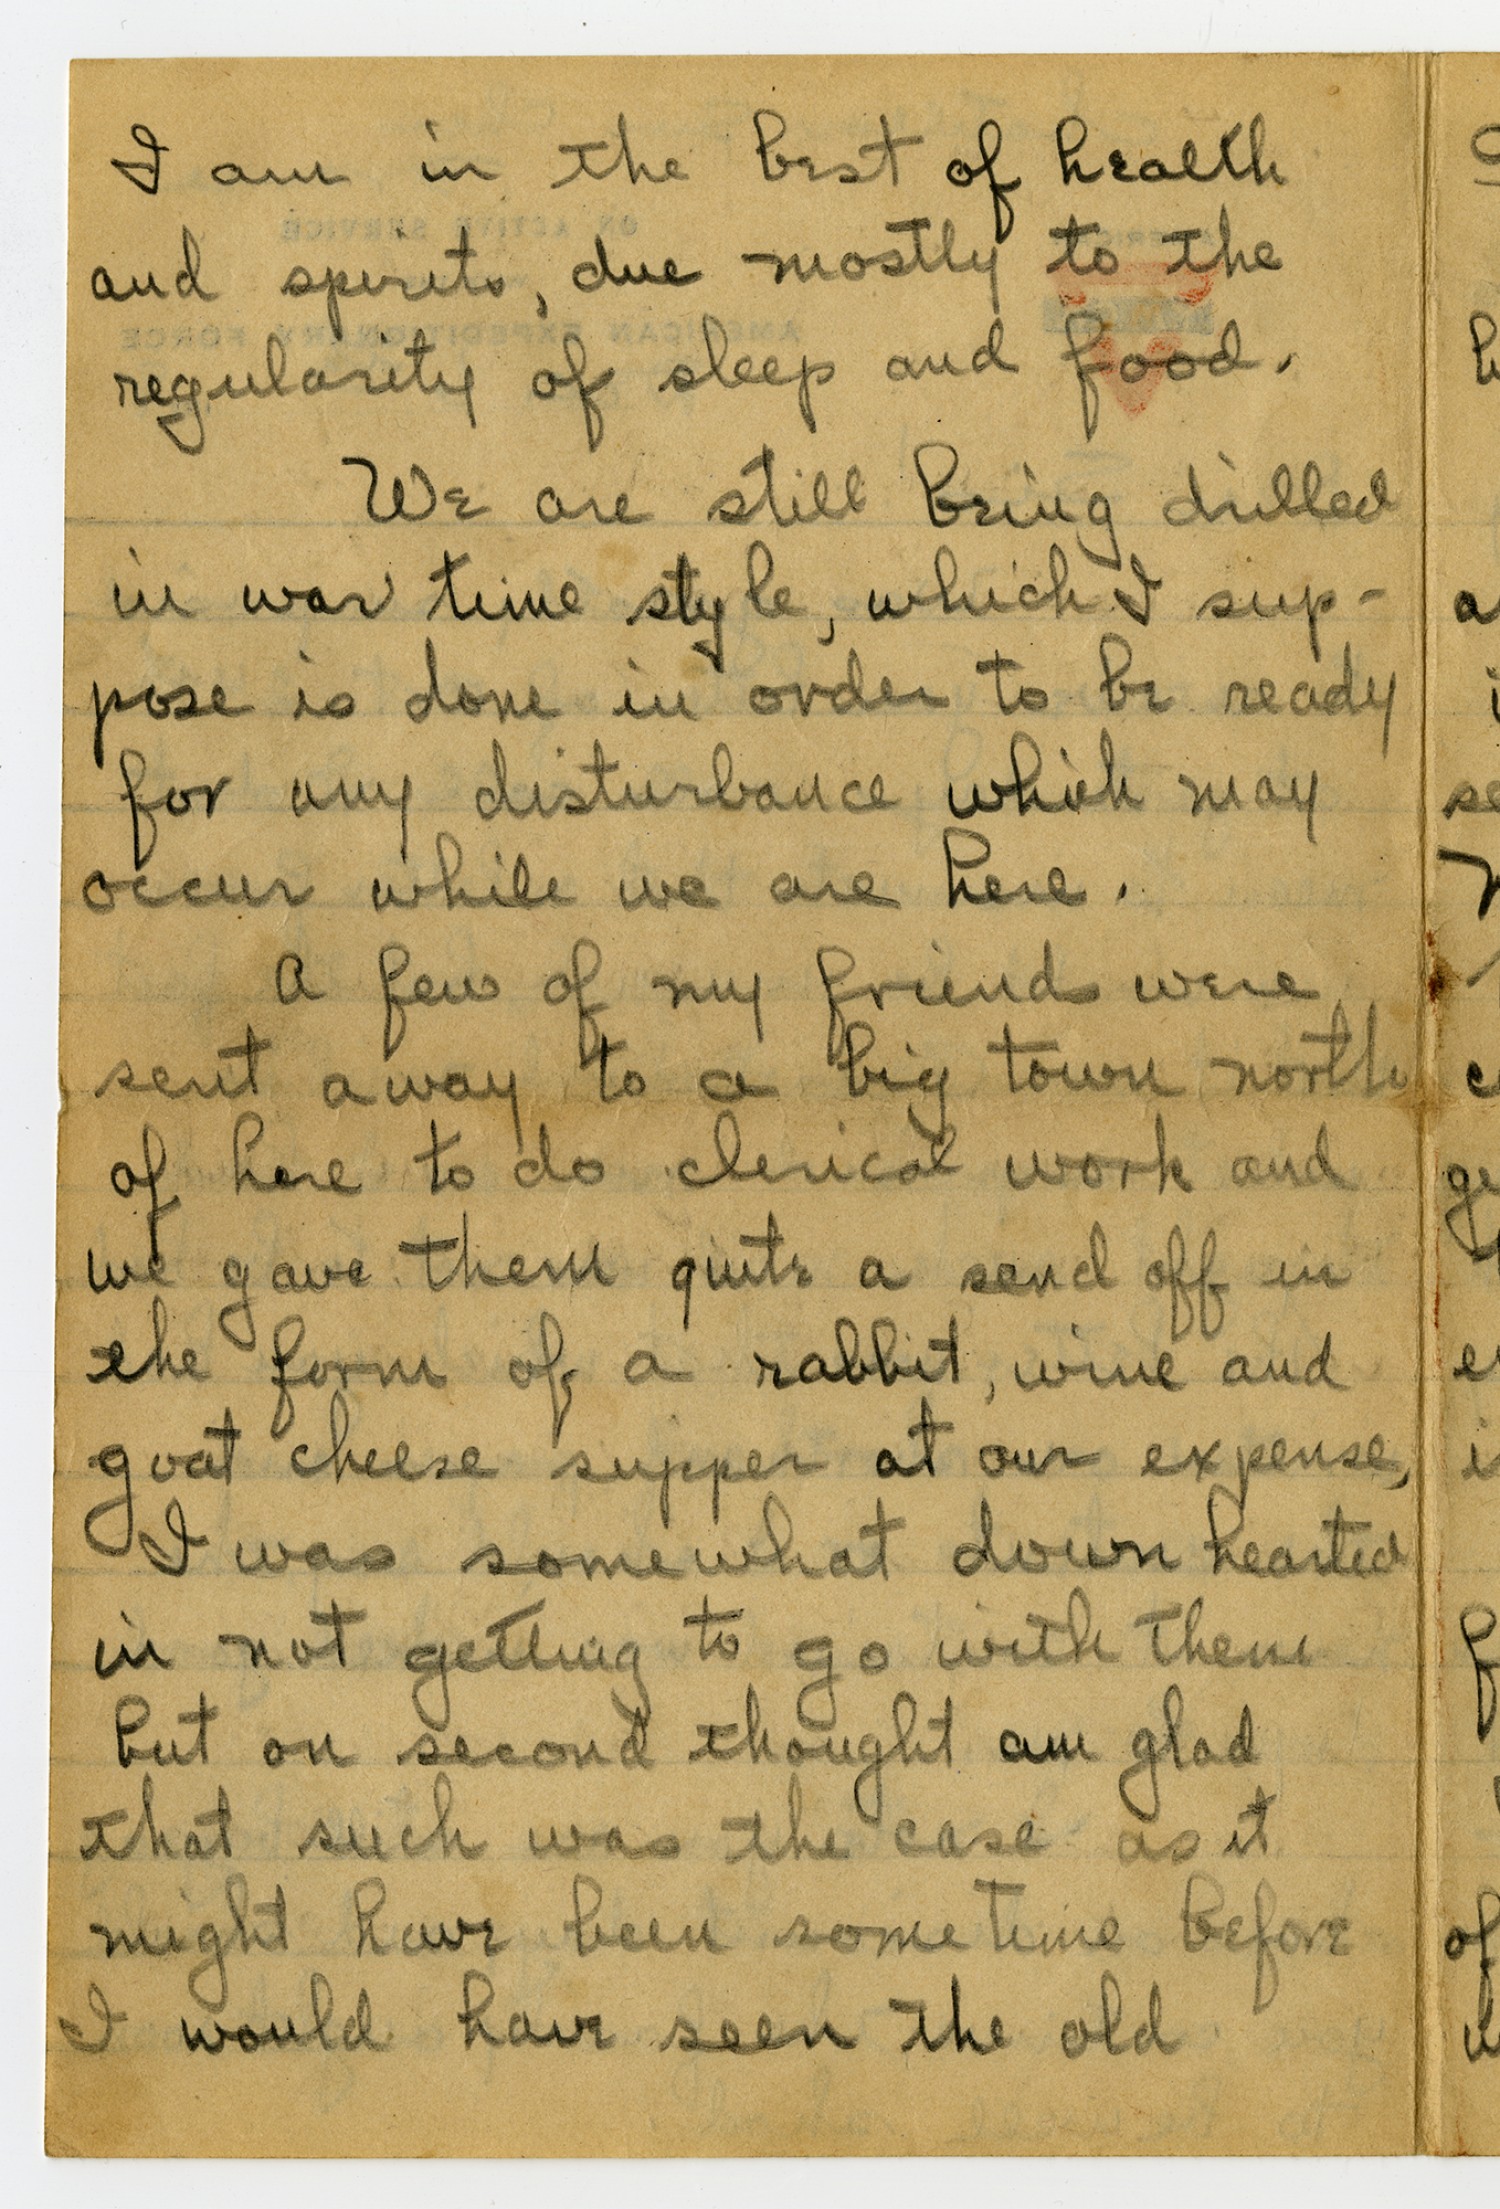 I am in the best of health
and spirits, due mostly to the
regularity of sleep and food.
We are still being drilled
in war time style, which I sup-
pose is done in order to be ready
for any disturbance which may
occur while we are here.
A few of my friends were
sent away to a big town north
of here to do clerical work and
we gave them quite a send off in
the form of a rabbit, wine and
goat cheese supper at our expense,
I was somewhat down hearted
in not getting to go with them
but on second thought am glad
that such was the case as it
might have been sometime before
I would have seen the old